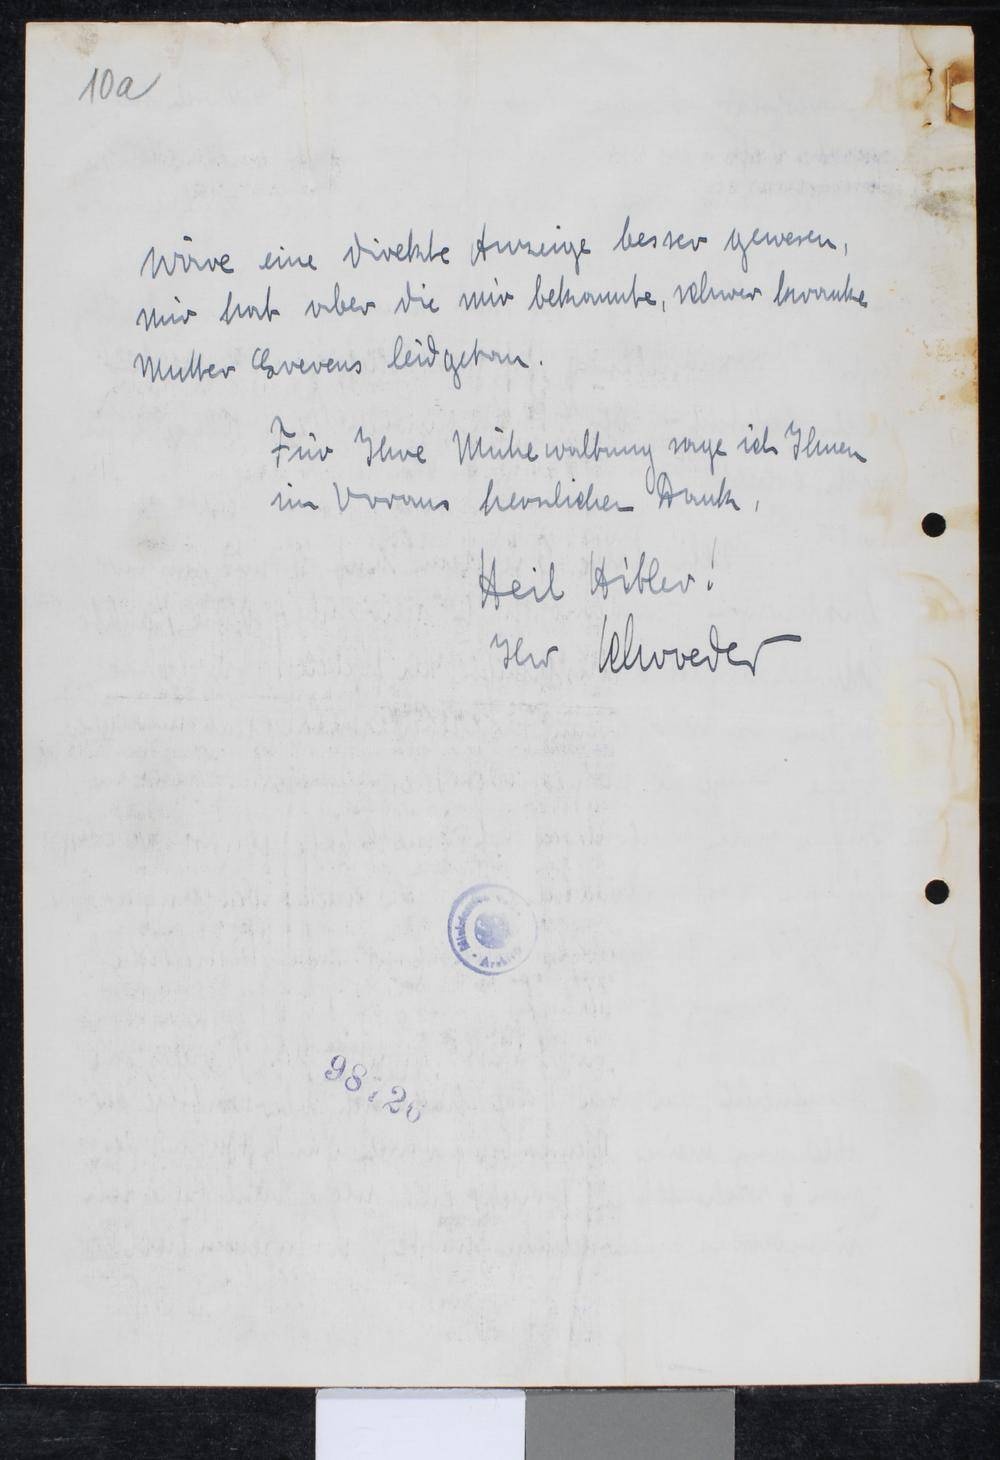 10a
Wäre eine direkte Anzeige besser gewesen,
mir hat aber die mir bekannte, schwer kranke
Mutter Grevens leidgetan.
Für Ihre Mühewaltung sage ich Ihnen
im Voraus herzlichen Dank.
Heil Hitler!
Ihr Schroeder
Ministerium
Archiv
98